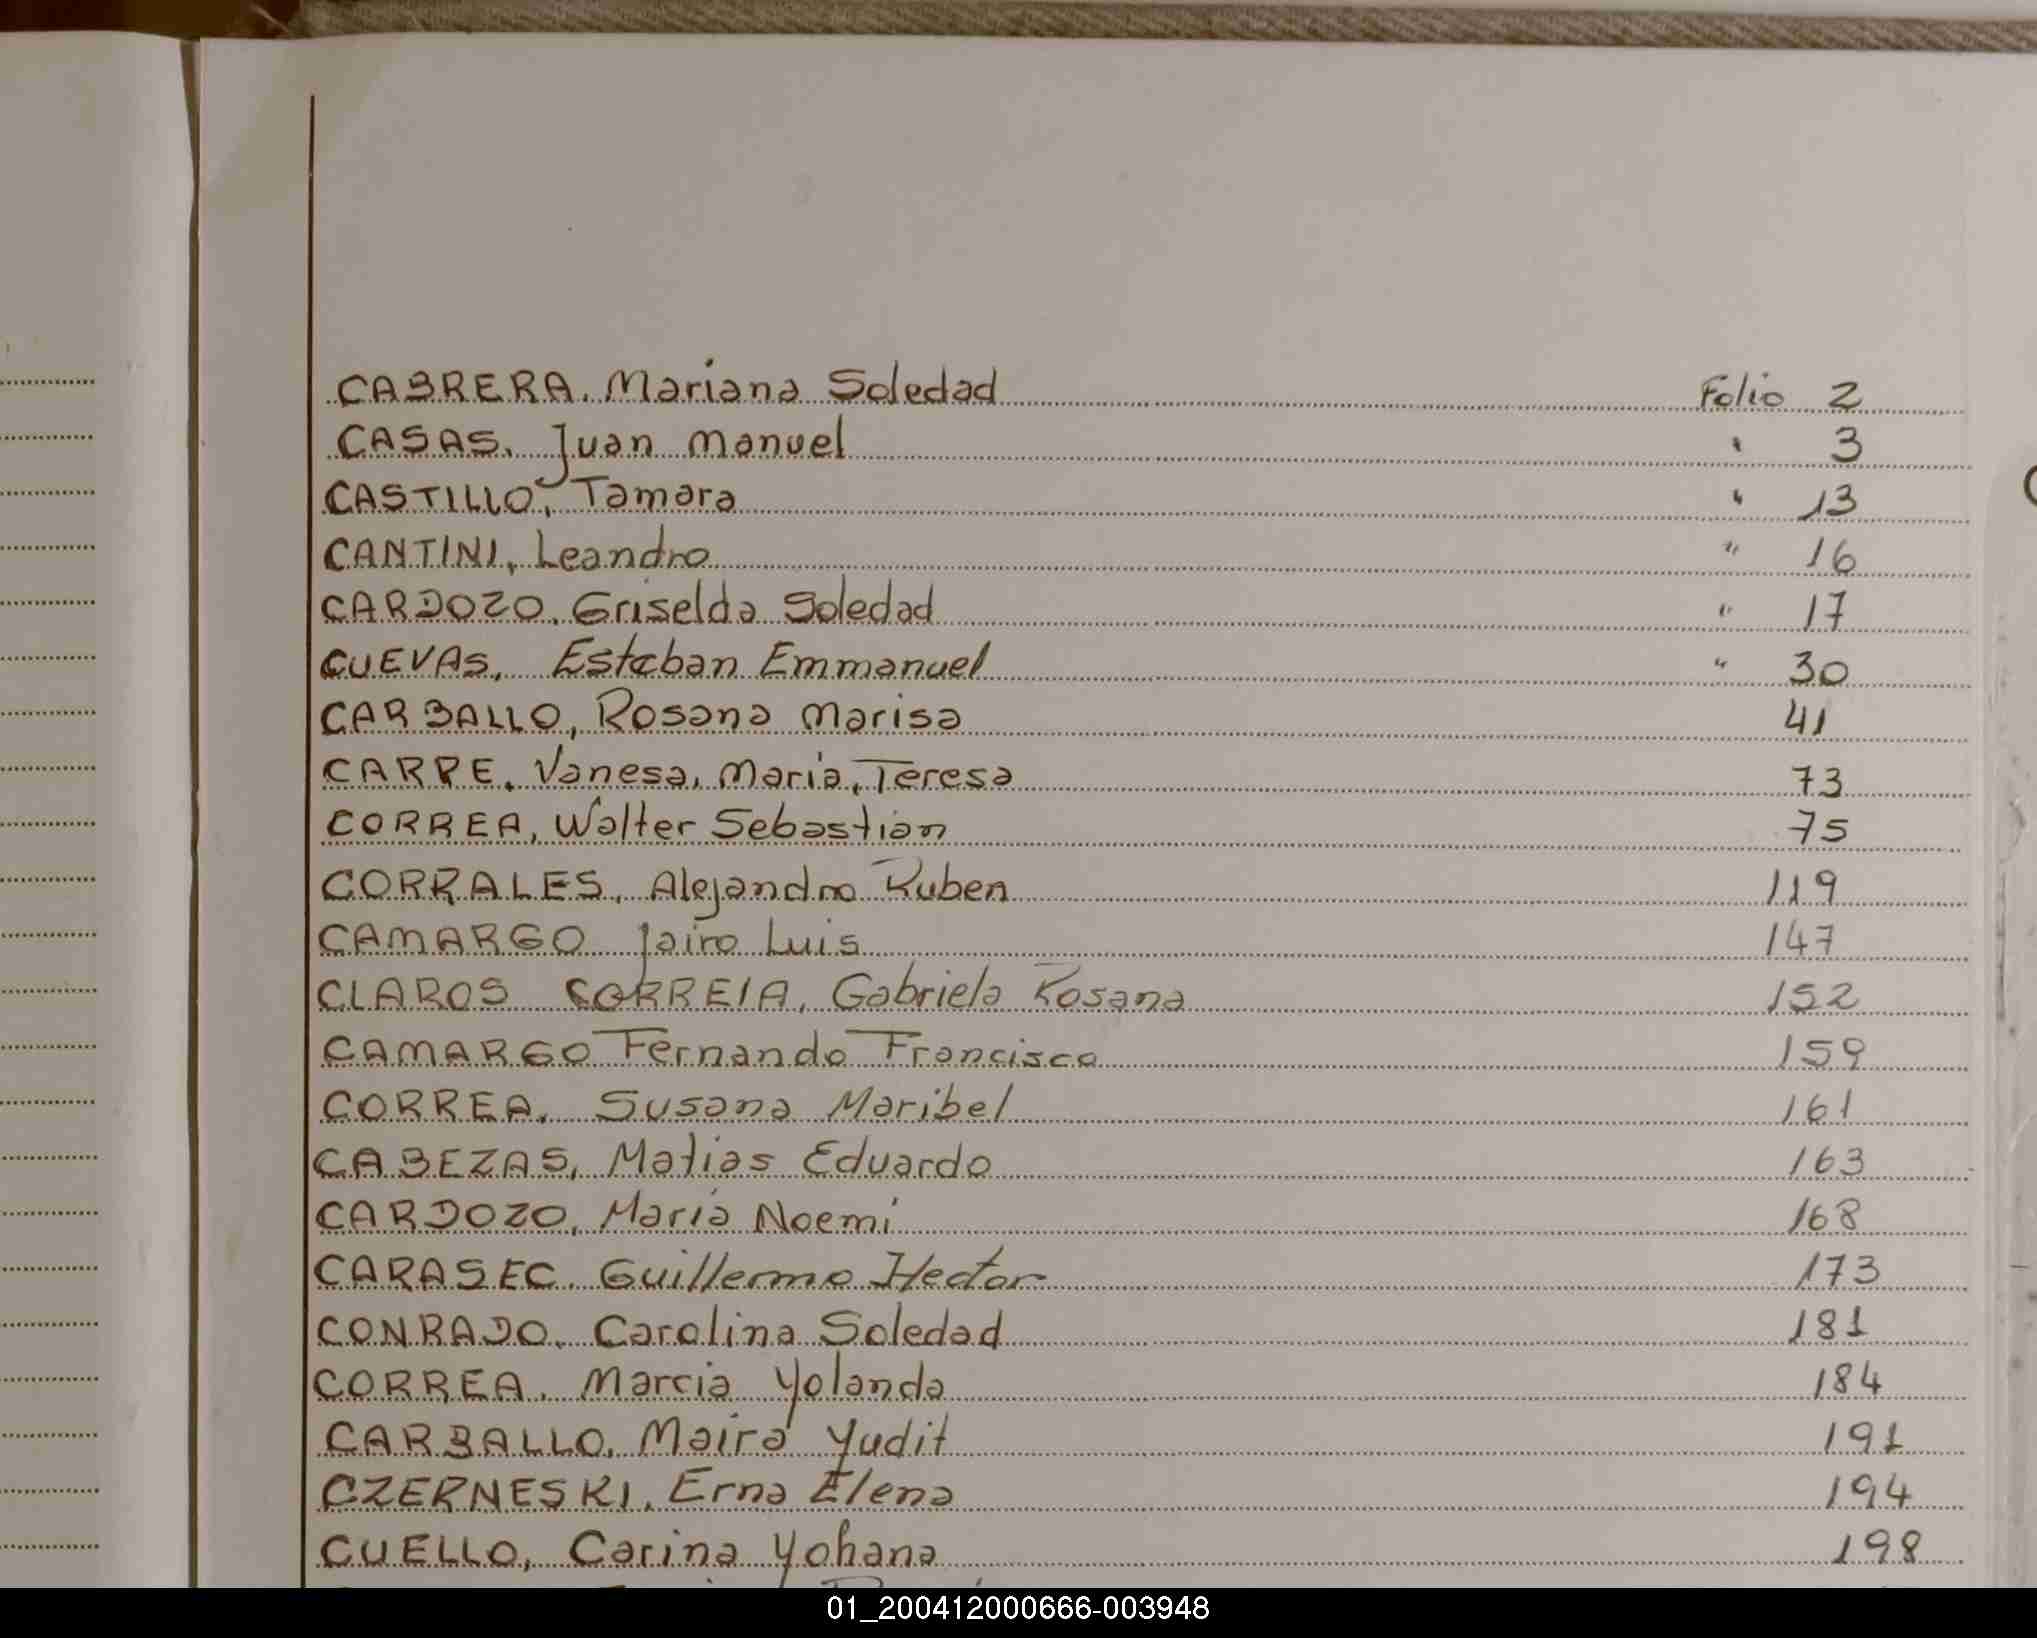 CABRERA, Mariana Soledad Folio 2
CASAS, Juan Manuel " 3
CASTILLO, Tamara " 13
CANTINI, Leandro " 16
CARDOZO, Griselda Soledad " 17
CUEVAS, Esteban Emmanuel " 30
CARBALLO, Rosana Marisa 41
CARPE, Vanesa, Maria, Teresa 73
CORREA, Walter Sebastian 75
CORRALES, Alejandro Ruben 119
CAMARGO Jairo Luis 147
CLAROS CORREIA, Gabriela Rosana 152
CAMARGO Fernando Francisco 159
CORREA, Susana Maribel 161
CABEZAS, Matias Eduardo 163
CARDOZO, Maria Noemi 168
CARASEC, Guillermo Hector 173
CONRADO, Carolina Soledad 181
CORREA, Marcia Yolanda 184
CARBALLO, Maira Yudit 191
CZERNESKI, Erna Elena 194
CUELLO, Carina Yohana 198
01_200412000666-003948